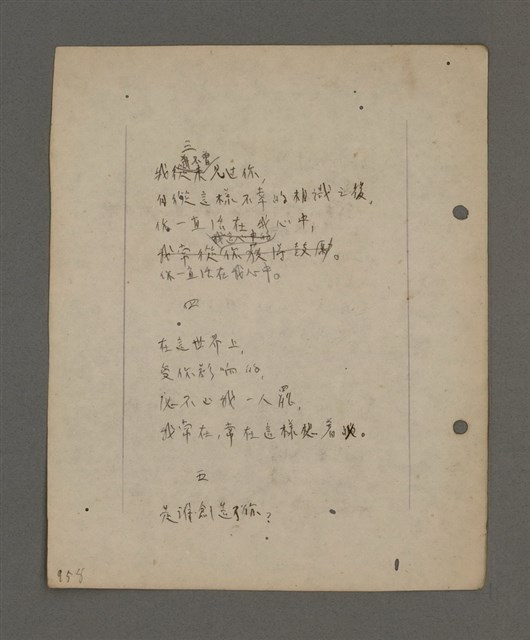 三
我從未見过你,
自從這樣不幸的相識之後,
你一直活在我心中,
我常從你獲得鼓勵。
你一直活在我心中。
四
在這世界上,
受你影响的,
恐不止我一人罷,
我常在,常在這樣想着呢。
五
是誰創造了你?
958
1